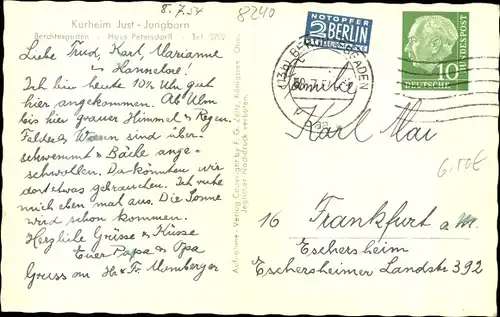 8.7.54
8240
Kurheim Just-Jungborn
Berchtesgaden - Haus Petersdorff - Tel 2702
Liebe Trud, Karl, Marianne
u Hannelore!
Ich bin heute 10¼ Uhr gut
hier angekommen. Ab Ulm
bis hier grauer Himmel u Regen.
Felder u Wiesen sind über-
schwemmt u Bäche ange-
schwollen. Da könnten wir
dort etwas gebrauchen. Ich ruhe
mich eben mal aus. Die Sonne
wird schon kommen.
Herzliche Grüsse u Küsse
Euer Papa u Opa
Gruss an Hr u Fr. Memberger
Aufnahme u. Verlag Copyright by F. G. Zeitz, Königssee Obb.
Jeglicher Nachdruck verboten.
NOTOPFER
2 BERLIN
STEUERMARKE
(13b) BERCHTESGADEN
DEUTSCHE BUNDESPOST
10
Familie
Karl Mai
6,50€
16 Frankfurt a.M.
Eschersheim
Eschersheimer Landstr 392